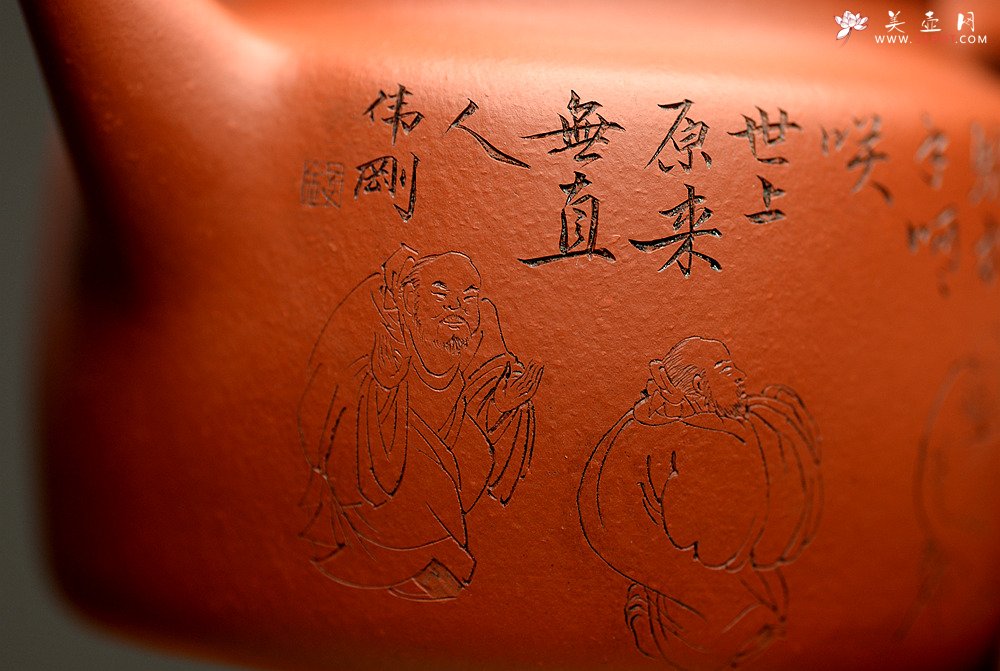 咲
世上
原来
無直
人
伟剛
美壶网
WWW. .COM